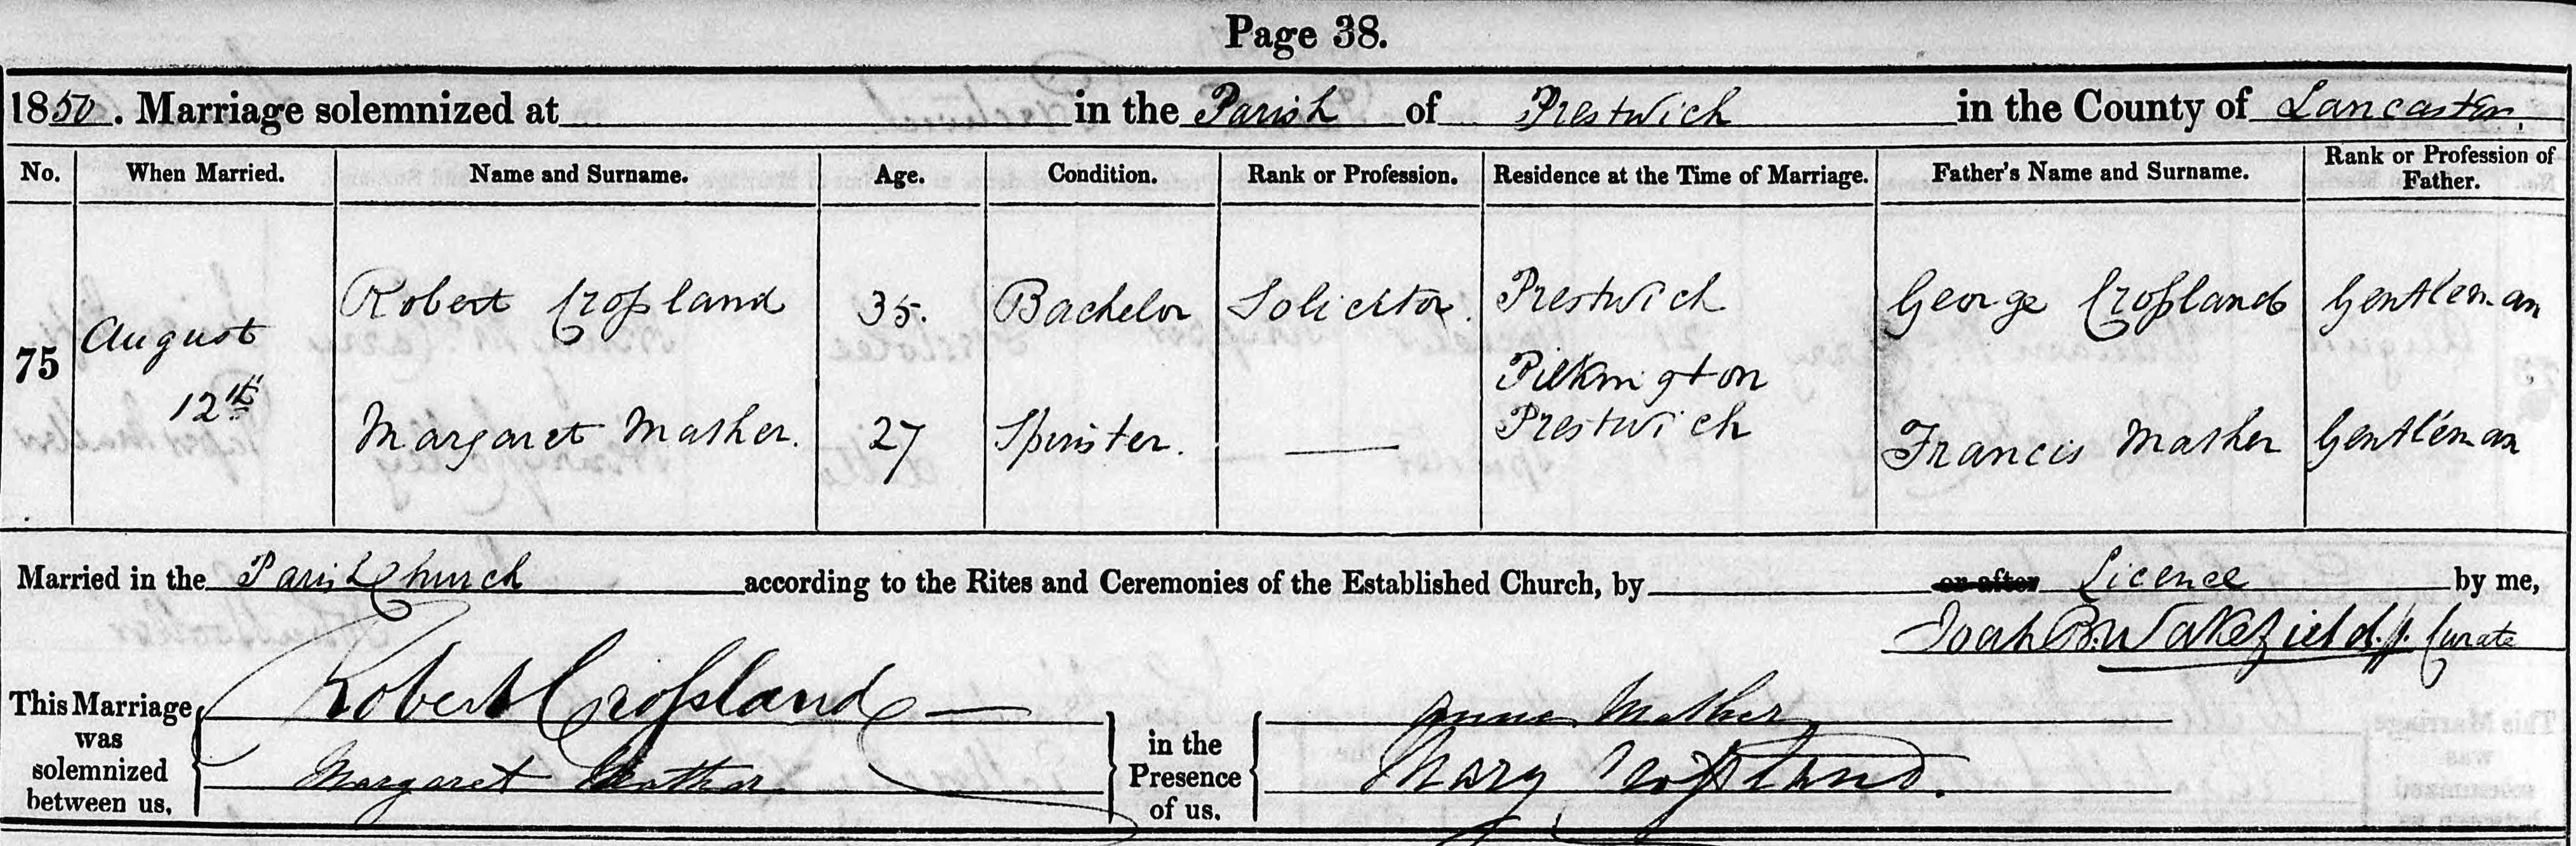 Page 38.
1850. Marriage solemnized at in the Parish of Prestwich in the County of Lancaster.
No. When Married. Name and Surname. Age. Condition. Rank or Profession. Residence at the Time of Marriage. Father's Name and Surname. Rank or Profession of Father.
Robert Croſsland 35. Bachelor Solicitor. Prestwich George Croſsland Gentleman
75 August 12th
Pilkington
Margaret Mather. 27 Spinster. — Prestwich Francis Mather Gentleman
Married in the Parish Church according to the Rites and Ceremonies of the Established Church, by or after Licence by me,
B. Wakefield. Curate
This Marriage was solemnized between us,
Robert Croſsland
Margaret Mather
in the Presence of us,
Anne Mather
Mary Croſsland.